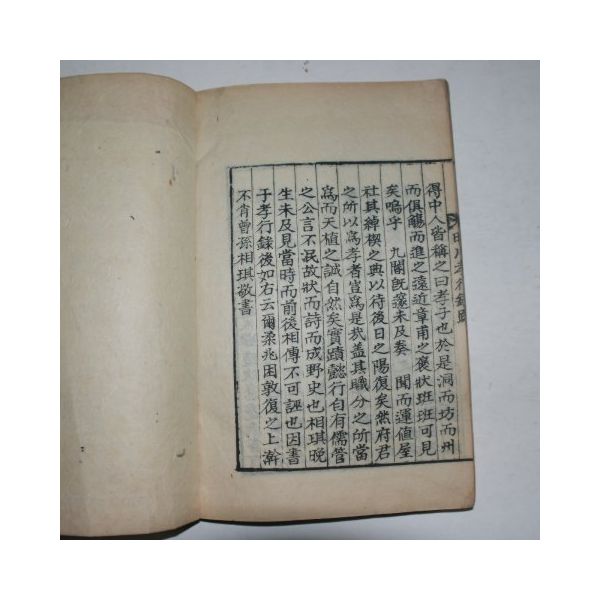 得中人皆稱之曰孝子也於是洞而坊而州
而俱觴而進之遠近章甫之褒狀班班可見
矣嗚乎 九閽旣邃未及奏 聞而運値屋
社其綽楔之典以待後日之陽復矣然府君
之所以爲孝者豈爲是我盖其職分之所當
爲而天植之誠自然矣實蹟懿行自有儒管
之公言不泯故狀而詩而成野史也相琪晩
生未及見當時而前後相傳不可誣也因書
于孝行錄後如右云爾柔兆困敦復之上澣
不肖曾孫相琪敬書
孝行錄